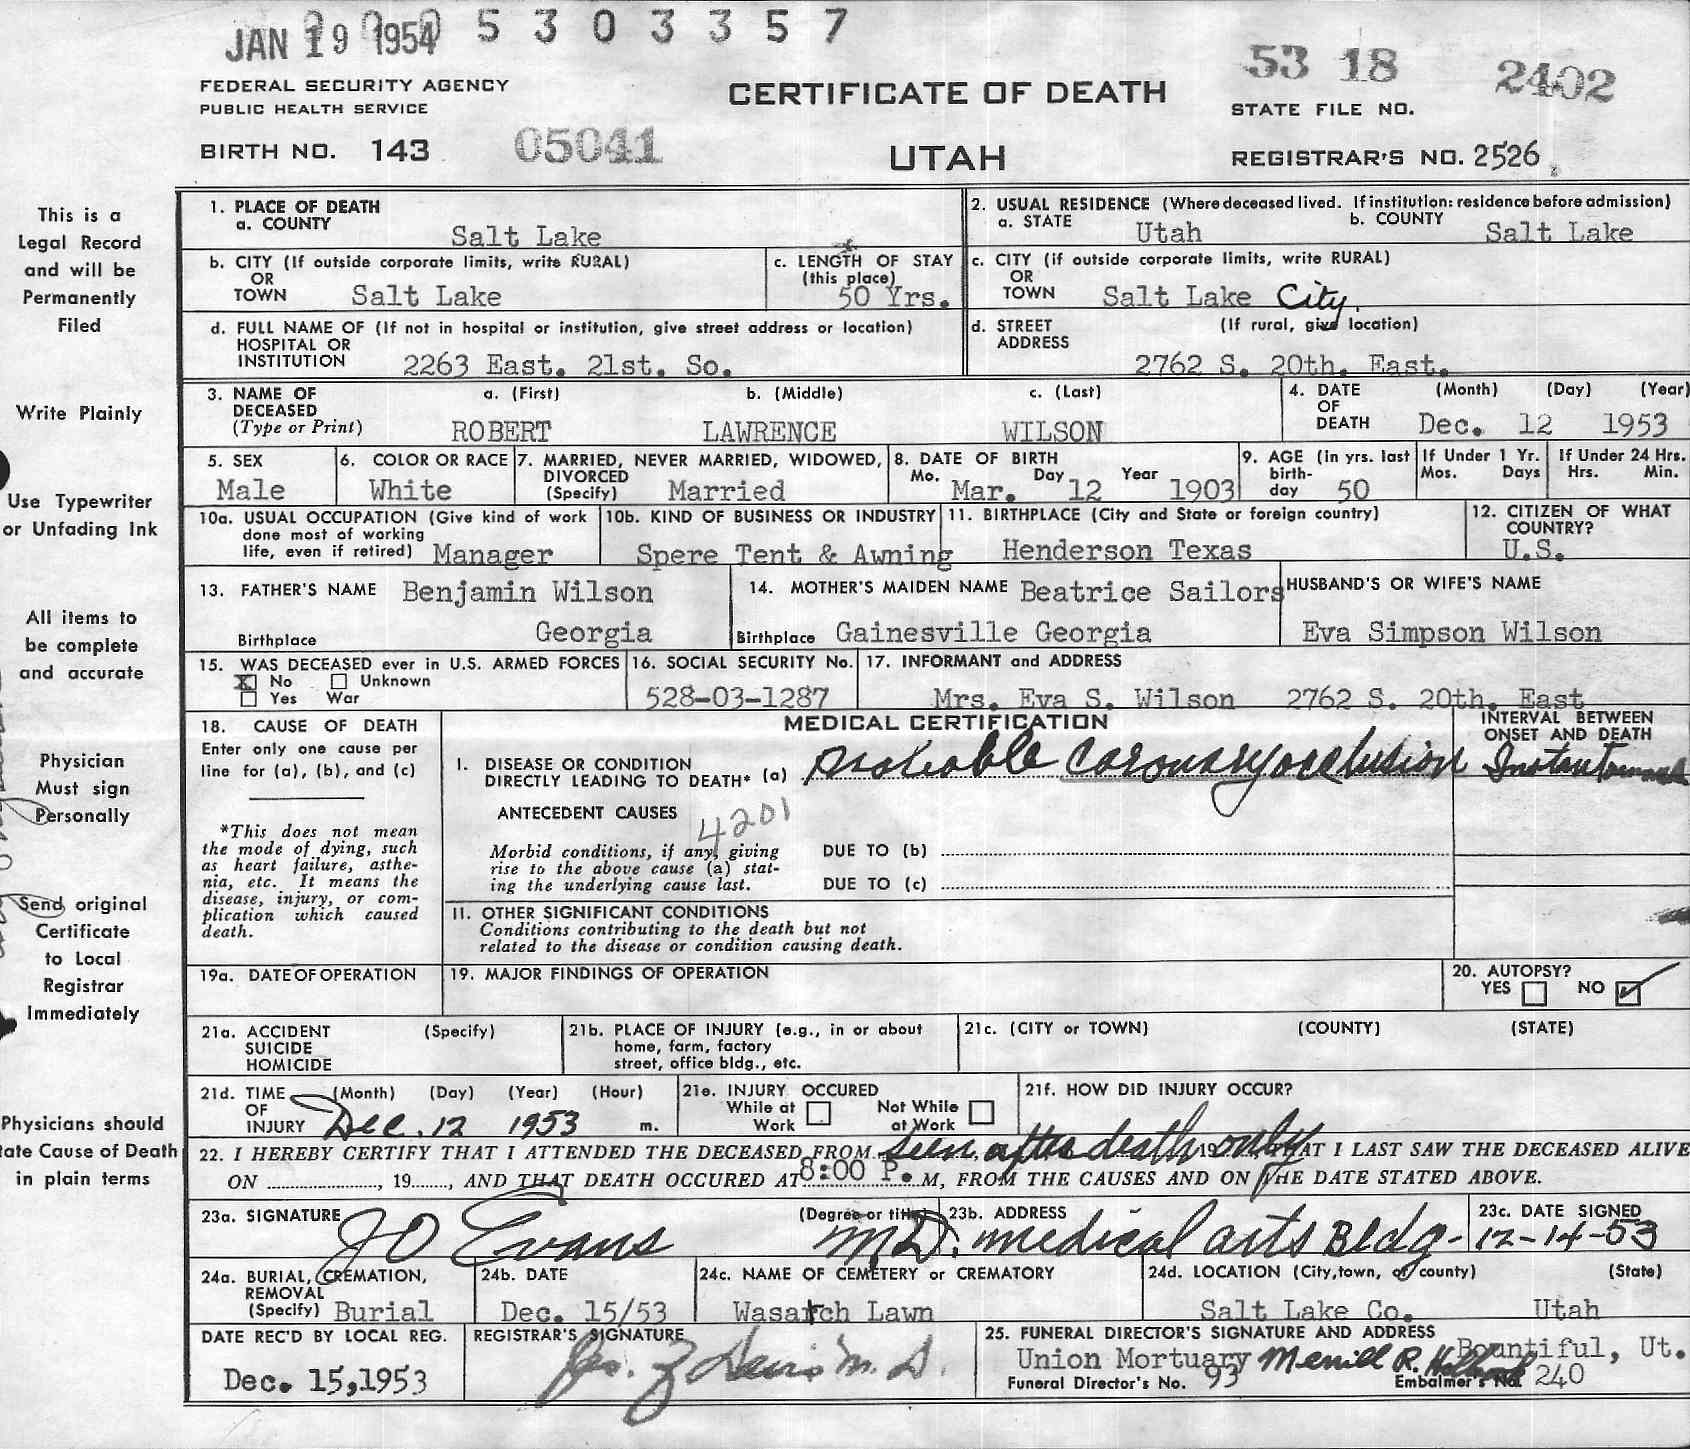 JAN 19 1954 5 3 0 3 3 5 7
53 18 2402
FEDERAL SECURITY AGENCY
PUBLIC HEALTH SERVICE
CERTIFICATE OF DEATH
STATE FILE NO.
BIRTH NO. 143 05041
UTAH
REGISTRAR'S NO. 2526
This is a
Legal Record
and will be
Permanently
Filed
Write Plainly
Use Typewriter
or Unfading Ink
All items to
be complete
and accurate
Physician
Must sign
Personally
Send original
Certificate
to Local
Registrar
Immediately
Physicians should
tate Cause of Death
in plain terms
1. PLACE OF DEATH
a. COUNTY Salt Lake
2. USUAL RESIDENCE (Where deceased lived. If institution: residence before admission)
a. STATE Utah b. COUNTY Salt Lake
b. CITY (If outside corporate limits, write RURAL)
OR
TOWN Salt Lake
c. LENGTH OF STAY
(this place)
50 Yrs.
c. CITY (if outside corporate limits, write RURAL)
OR
TOWN Salt Lake City
d. FULL NAME OF (If not in hospital or institution, give street address or location)
HOSPITAL OR
INSTITUTION 2263 East. 21st. So.
d. STREET (If rural, give location)
ADDRESS
2762 S. 20th. East.
3. NAME OF a. (First) b. (Middle) c. (Last)
DECEASED
(Type or Print) ROBERT LAWRENCE WILSON
4. DATE (Month) (Day) (Year)
OF
DEATH Dec. 12 1953
5. SEX
Male
6. COLOR OR RACE
White
7. MARRIED, NEVER MARRIED, WIDOWED,
DIVORCED
(Specify) Married
8. DATE OF BIRTH
Mo. Day Year
Mar. 12 1903
9. AGE (In yrs. last
birth-
day 50
If Under 1 Yr.
Mos. Days
If Under 24 Hrs.
Hrs. Min.
10a. USUAL OCCUPATION (Give kind of work
done most of working
life, even if retired) Manager
10b. KIND OF BUSINESS OR INDUSTRY
Spere Tent & Awning
11. BIRTHPLACE (City and State or foreign country)
Henderson Texas
12. CITIZEN OF WHAT
COUNTRY?
U.S.
13. FATHER'S NAME Benjamin Wilson
Birthplace Georgia
14. MOTHER'S MAIDEN NAME Beatrice Sailors
Birthplace Gainesville Georgia
HUSBAND'S OR WIFE'S NAME
Eva Simpson Wilson
15. WAS DECEASED ever in U.S. ARMED FORCES
X No Unknown
Yes War
16. SOCIAL SECURITY No.
528-03-1287
17. INFORMANT and ADDRESS
Mrs. Eva S. Wilson 2762 S. 20th. East
18. CAUSE OF DEATH
Enter only one cause per
line for (a), (b), and (c)
*This does not mean
the mode of dying, such
as heart failure, asthe-
nia, etc. It means the
disease, injury, or com-
plication which caused
death.
MEDICAL CERTIFICATION
INTERVAL BETWEEN
ONSET AND DEATH
I. DISEASE OR CONDITION
DIRECTLY LEADING TO DEATH* (a) probable coronary occlusion
ANTECEDENT CAUSES 4201
Morbid conditions, if any, giving
rise to the above cause (a) stat-
ing the underlying cause last.
DUE TO (b)
DUE TO (c)
II. OTHER SIGNIFICANT CONDITIONS
Conditions contributing to the death but not
related to the disease or condition causing death.
19a. DATE OF OPERATION
19. MAJOR FINDINGS OF OPERATION
20. AUTOPSY?
YES NO ✓
21a. ACCIDENT (Specify)
SUICIDE
HOMICIDE
21b. PLACE OF INJURY (e.g., in or about
home, farm, factory
street, office bldg., etc.
21c. (CITY or TOWN) (COUNTY) (STATE)
21d. TIME (Month) (Day) (Year) (Hour)
OF
INJURY Dec. 12 1953 m.
21e. INJURY OCCURED
While at Work Not While at Work
21f. HOW DID INJURY OCCUR?
22. I HEREBY CERTIFY THAT I ATTENDED THE DECEASED FROM seen after death only 19 THAT I LAST SAW THE DECEASED ALIVE
ON , 19 , AND THAT DEATH OCCURED AT 8:00 P. M, FROM THE CAUSES AND ON THE DATE STATED ABOVE.
23a. SIGNATURE (Degree or title)
J O Evans M.D.
23b. ADDRESS
medical arts Bldg-
23c. DATE SIGNED
12-14-53
24a. BURIAL, CREMATION,
REMOVAL
(Specify) Burial
24b. DATE
Dec. 15/53
24c. NAME OF CEMETERY or CREMATORY
Wasatch Lawn
24d. LOCATION (City, town, or county) (State)
Salt Lake Co. Utah
DATE REC'D BY LOCAL REG.
Dec. 15,1953
REGISTRAR'S SIGNATURE
M. D.
25. FUNERAL DIRECTOR'S SIGNATURE AND ADDRESS Bountiful, Ut.
Union Mortuary Merrill R.
Funeral Director's No. 93 Embalmer's No. 240